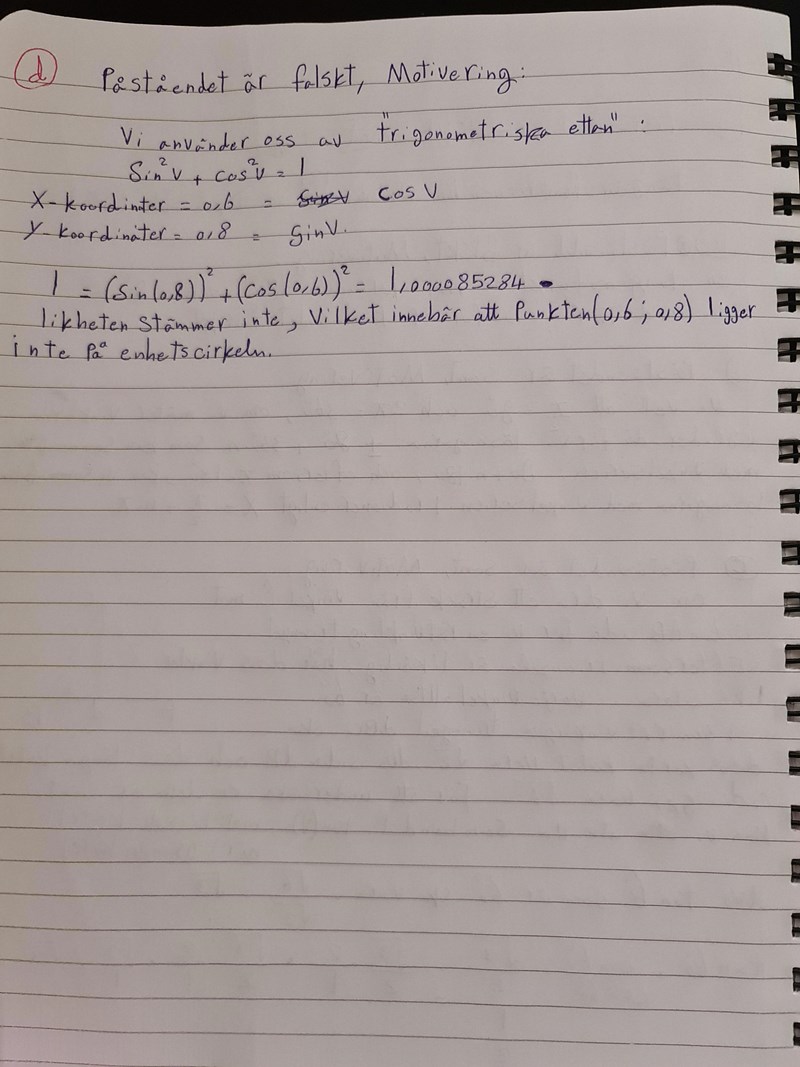 d Påstående är falskt, Motivering:
Vi använder oss av "trigonometriska ettan" :
Sin²v + cos²v = 1
X-koordinter = 0,6 = cos V
Y-koordinater = 0,8 = SinV.
1 = (Sin(0,8))² + (cos(0,6))² = 1,000085284
likheten Stämmer inte, Vilket innebär att Punkten (0,6 ; 0,8) ligger
inte på enhetscirkeln.